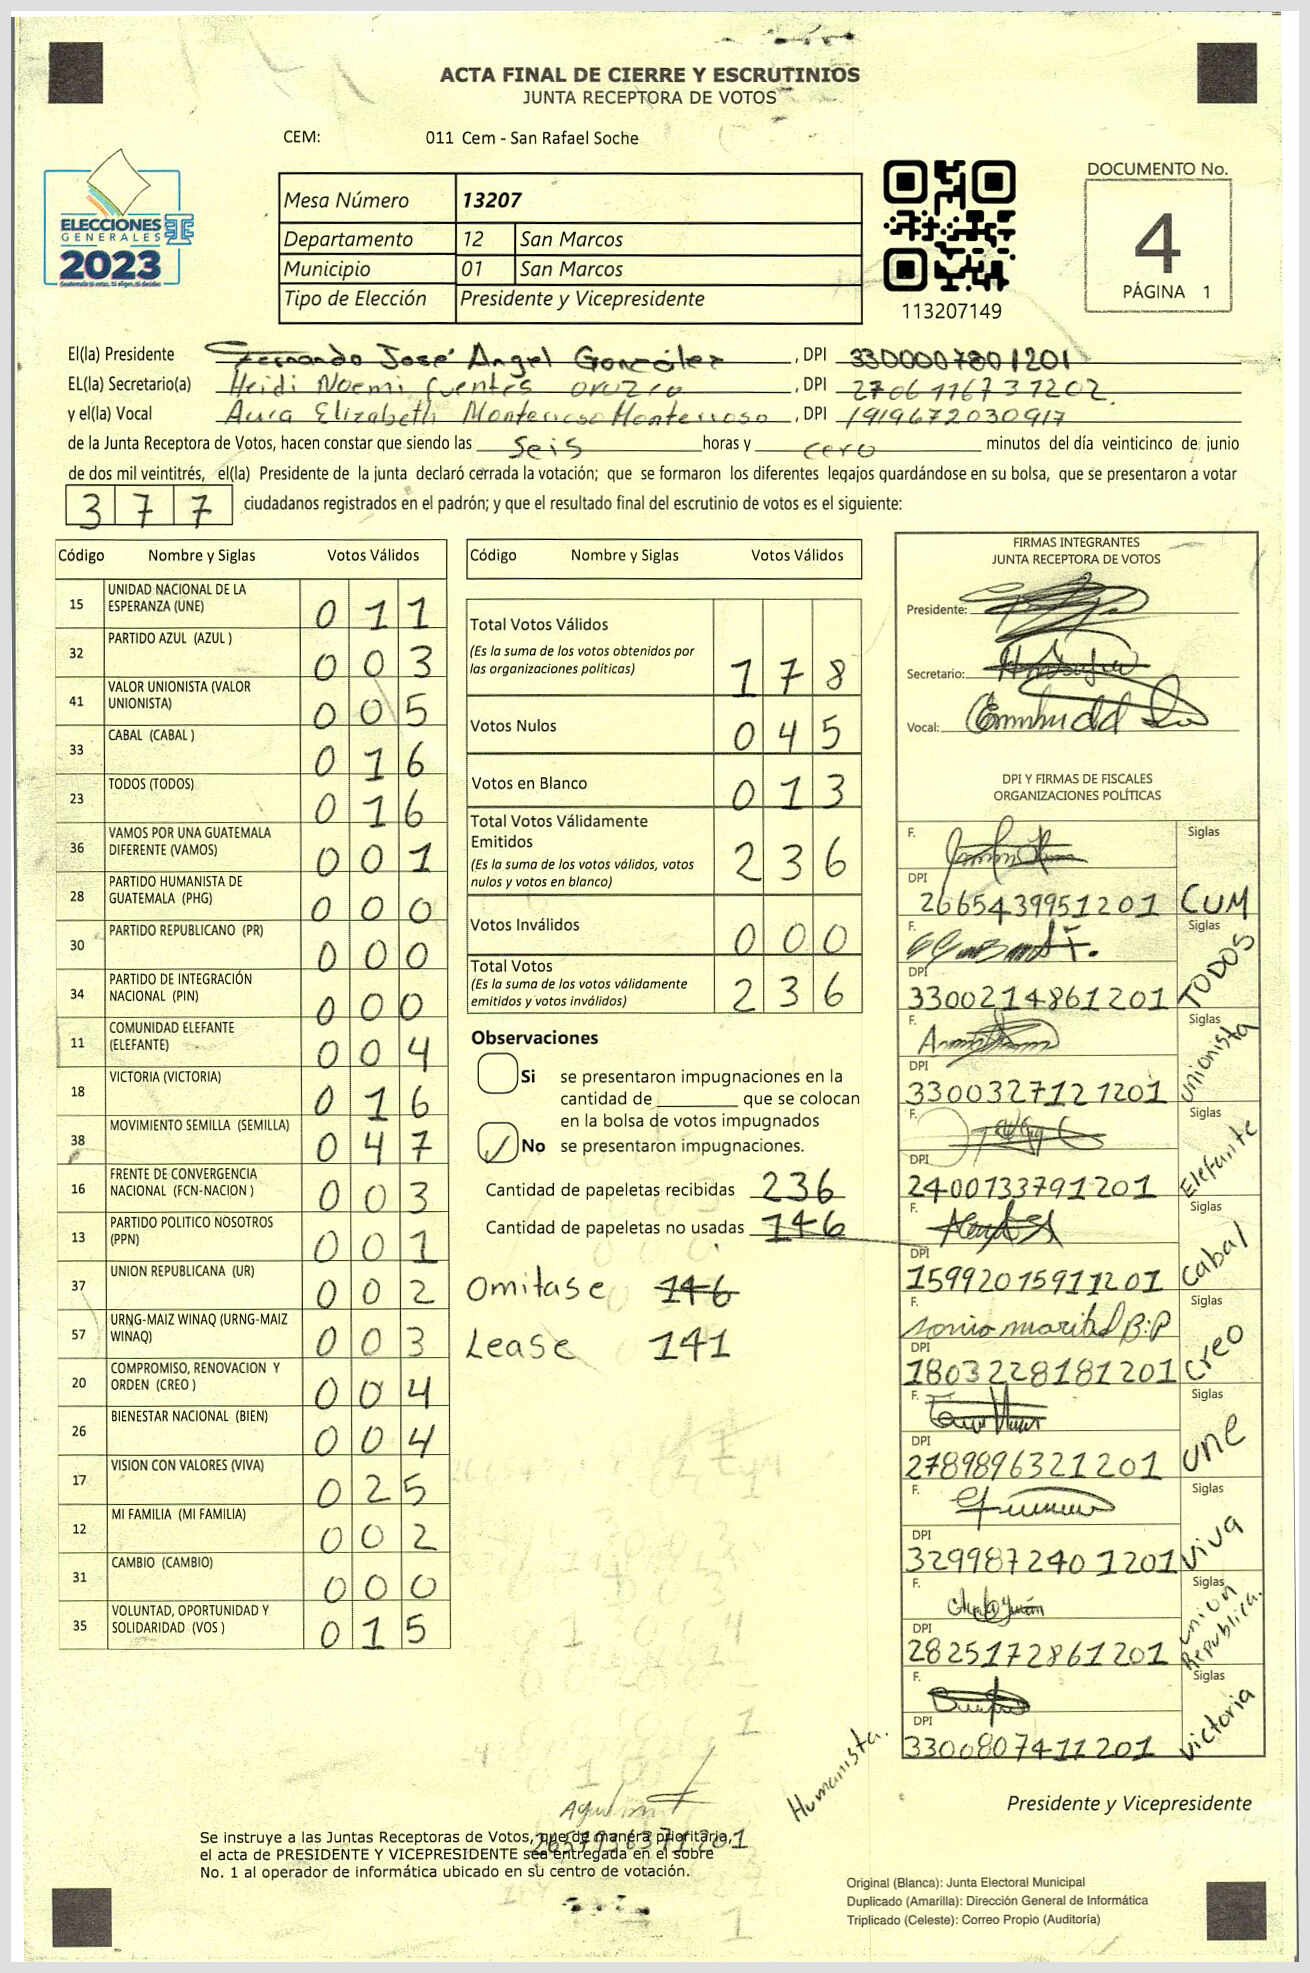 ACTA FINAL DE CIERRE Y ESCRUTINIOS
JUNTA RECEPTORA DE VOTOS
CEM: 011 Cem - San Rafael Soche
ELECCIONES
GENERALES
2023
Mesa Número 13207
Departamento 12 San Marcos
Municipio 01 San Marcos
Tipo de Elección Presidente y Vicepresidente
113207149
DOCUMENTO No.
4
PÁGINA 1
El(la) Presidente Fernando José Angel González , DPI 3300007801201
EL(la) Secretario(a) Heidi Noemi fuentes orozco , DPI 2706116731202.
y el(la) Vocal Aura Elizabeth Monterroso Monterroso , DPI 1919672030917
de la Junta Receptora de Votos, hacen constar que siendo las seis horas y cero minutos del día veinticinco de junio
de dos mil veintitrés, el(la) Presidente de la junta declaró cerrada la votación; que se formaron los diferentes legajos quardándose en su bolsa, que se presentaron a votar
377 ciudadanos registrados en el padrón; y que el resultado final del escrutinio de votos es el siguiente:
Código Nombre y Siglas Votos Válidos
15 UNIDAD NACIONAL DE LA ESPERANZA (UNE) 011
32 PARTIDO AZUL (AZUL ) 003
41 VALOR UNIONISTA (VALOR UNIONISTA) 005
33 CABAL (CABAL ) 016
23 TODOS (TODOS) 016
36 VAMOS POR UNA GUATEMALA DIFERENTE (VAMOS) 001
28 PARTIDO HUMANISTA DE GUATEMALA (PHG) 000
30 PARTIDO REPUBLICANO (PR) 000
34 PARTIDO DE INTEGRACIÓN NACIONAL (PIN) 000
11 COMUNIDAD ELEFANTE (ELEFANTE) 004
18 VICTORIA (VICTORIA) 016
38 MOVIMIENTO SEMILLA (SEMILLA) 047
16 FRENTE DE CONVERGENCIA NACIONAL (FCN-NACION ) 003
13 PARTIDO POLITICO NOSOTROS (PPN) 001
37 UNION REPUBLICANA (UR) 002
57 URNG-MAIZ WINAQ (URNG-MAIZ WINAQ) 003
20 COMPROMISO, RENOVACION Y ORDEN (CREO ) 004
26 BIENESTAR NACIONAL (BIEN) 004
17 VISION CON VALORES (VIVA) 025
12 MI FAMILIA (MI FAMILIA) 002
31 CAMBIO (CAMBIO) 000
35 VOLUNTAD, OPORTUNIDAD Y SOLIDARIDAD (VOS ) 015
Código Nombre y Siglas Votos Válidos
Total Votos Válidos 178
(Es la suma de los votos obtenidos por
las organizaciones políticas)
Votos Nulos 045
Votos en Blanco 013
Total Votos Válidamente
Emitidos 236
(Es la suma de los votos válidos, votos
nulos y votos en blanco)
Votos Inválidos 000
Total Votos 236
(Es la suma de los votos válidamente
emitidos y votos inválidos)
Observaciones
Si se presentaron impugnaciones en la
cantidad de ________ que se colocan
en la bolsa de votos impugnados
No se presentaron impugnaciones.
Cantidad de papeletas recibidas 236
Cantidad de papeletas no usadas 146
Omitase 146
Lease 141
FIRMAS INTEGRANTES
JUNTA RECEPTORA DE VOTOS
Presidente:
Secretario:
Vocal:
DPI Y FIRMAS DE FISCALES
ORGANIZACIONES POLÍTICAS
F. Siglas
DPI
2665439951201 CUM
F. Siglas
DPI
3300214861201 TODOS
F. Siglas
DPI
3300327121201 unionista
F. Siglas
DPI
2400133791201 Elefante
F. Siglas
DPI
1599201591 1201 Cabal
F. sonia maribel B:P Siglas
DPI
1803228181201 Creo
F. Siglas
DPI
2789896321201 une
F. Siglas
DPI
3299872401201 viva
F. Siglas
DPI
2825172861201 union Republica.
F. Siglas
DPI
3300807411201 victoria
Humanista.
Presidente y Vicepresidente
Se instruye a las Juntas Receptoras de Votos, que de manera prioritaria,
el acta de PRESIDENTE Y VICEPRESIDENTE sea entregada en el sobre
No. 1 al operador de informática ubicado en su centro de votación.
Original (Blanca): Junta Electoral Municipal
Duplicado (Amarilla): Dirección General de Informática
Triplicado (Celeste): Correo Propio (Auditoría)